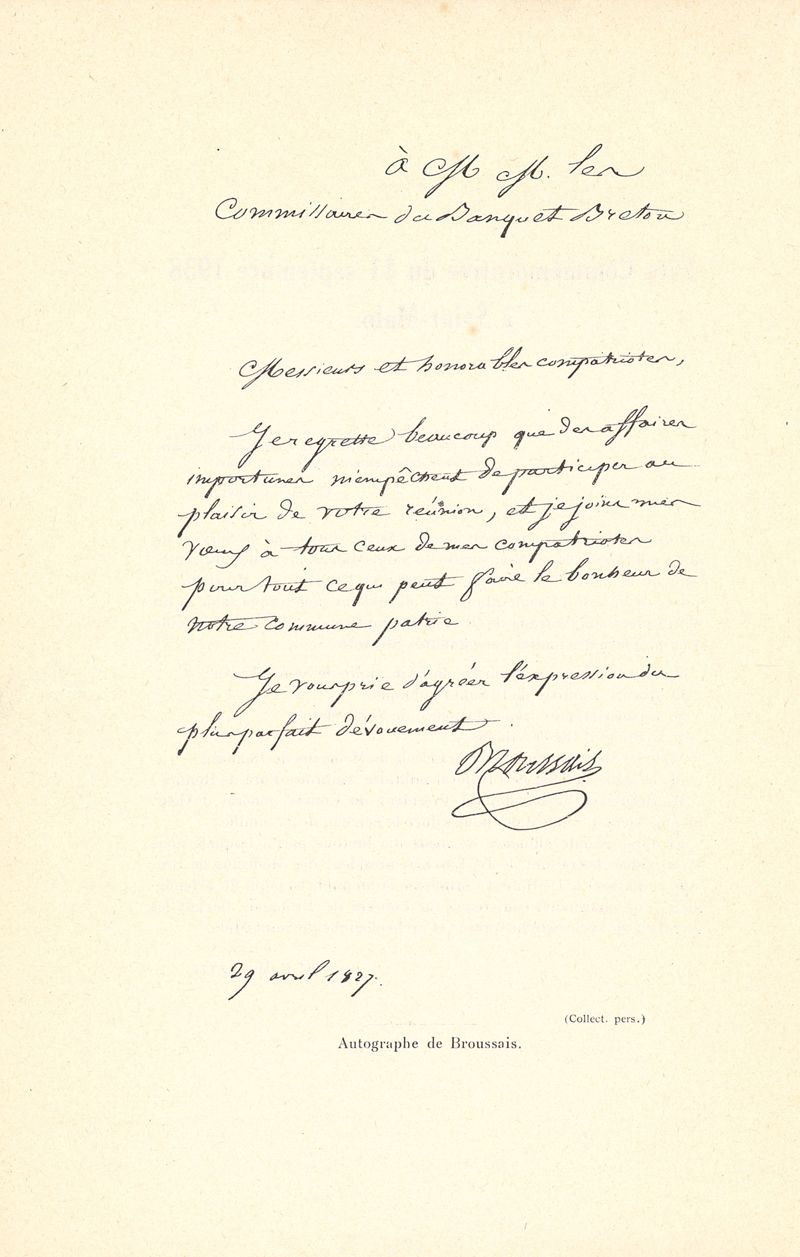 à M M. les
Commissaires du Banquet Breton
Messieurs et honorables compatriotes,
Je regrette beaucoup que des affaires
importunes m'empêchent de participer au
plaisir de votre réunion, et je joins mes
vœux à tous ceux de mes compatriotes
pour tout ce qui peut faire le bonheur de
notre commune patrie
Je vous prie d'agréer l'expression du
plus parfait dévouement.
Broussais
29 avril 1827.
(Collect. pers.)
Autographe de Broussais.